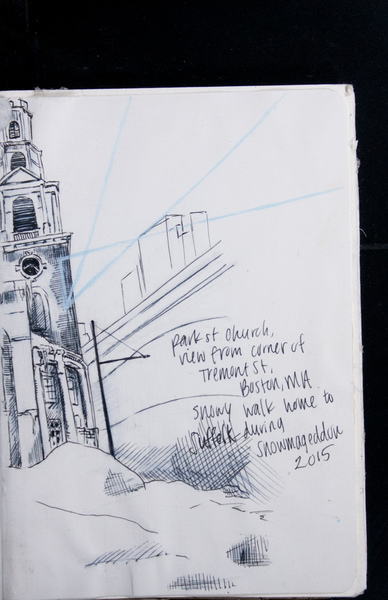 park st church,
view from corner of
Tremont St,
Boston, MA
snowy walk home to
Suffolk during
snowmageddon
2015